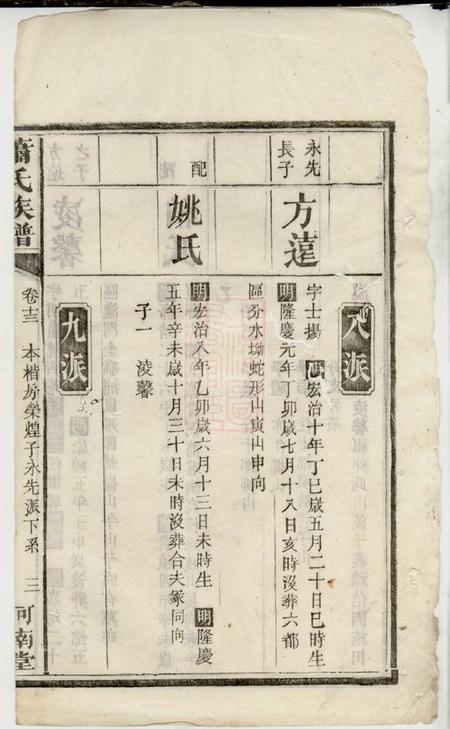 八派
永先
長子
方蓮
字士揚 明宏治十年丁巳歲五月二十日巳時生
明隆慶元年丁卯歲七月十八日亥時沒葬六都
區分水坳蛇形山寅山申向
配
姚氏
明宏治八年乙卯歲六月十三日未時生 明隆慶
五年辛未歲十月三十日未時沒葬合夫冢同向
子一 淩馨
九派
蕭氏族譜
卷十三 本楷房榮煌子永先派下系 三
河南堂